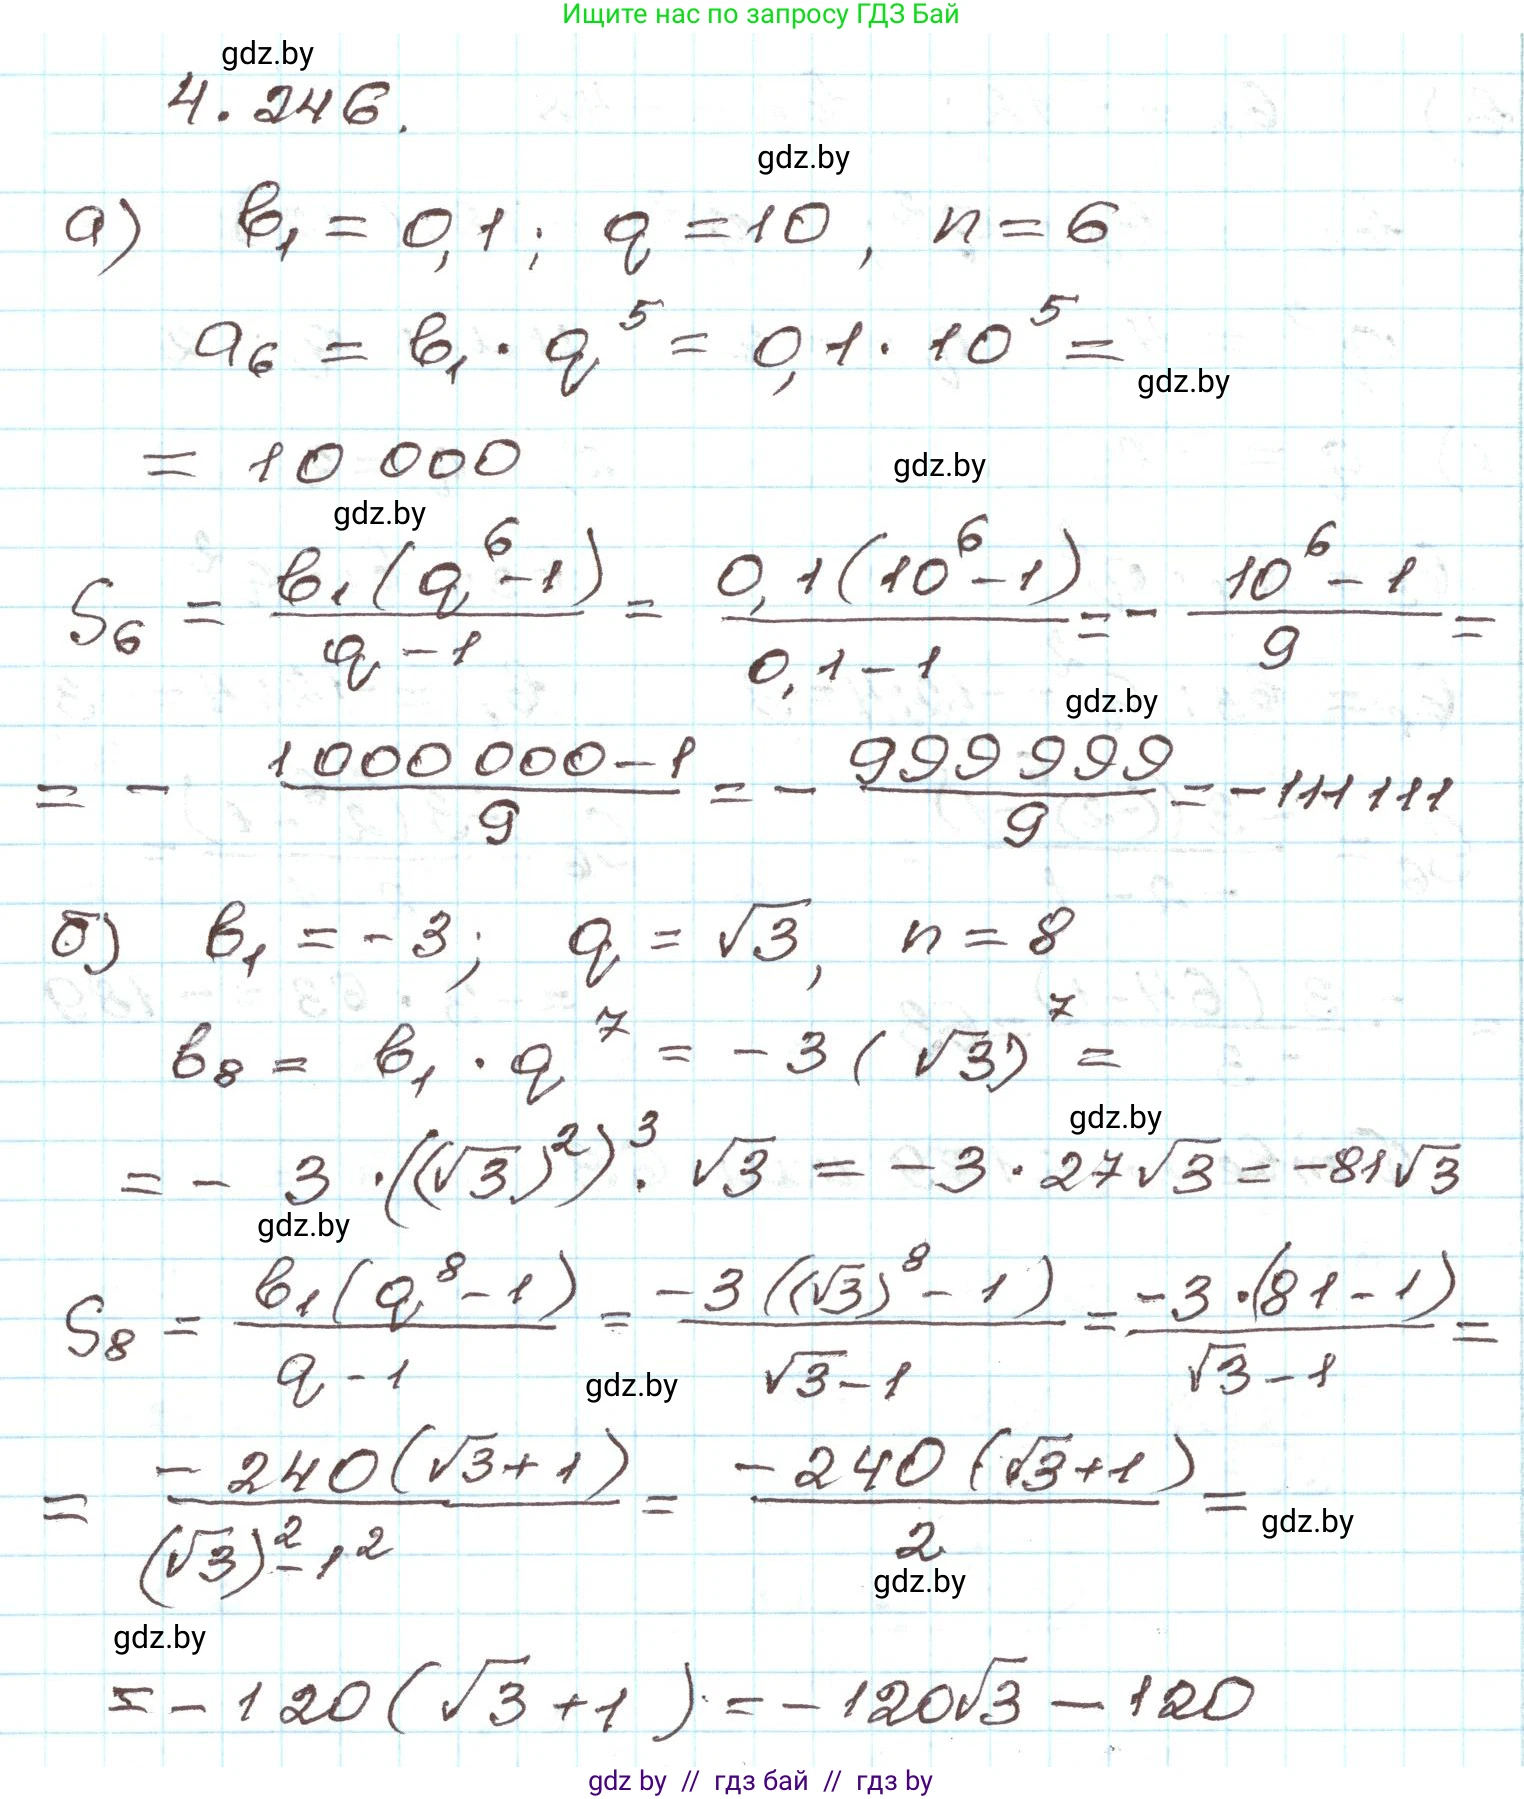 Ищите нас по запросу ГДЗ Бай
gdz.by
4.246.
gdz.by
а) b₁ = 0,1; q = 10, n = 6
a₆ = b₁ · q⁵ = 0,1 · 10⁵ =
gdz.by
= 10 000
gdz.by
gdz.by
S₆ = b₁(q⁶-1)/(q-1) = 0,1(10⁶-1)/(0,1-1) = - (10⁶-1)/9 =
gdz.by
= - (1 000 000-1)/9 = - 999 999/9 = -111 111
б) b₁ = -3; q = √3, n = 8
b₈ = b₁ · q⁷ = -3(√3)⁷ =
gdz.by
= - 3 · ((√3)²)³ · √3 = -3 · 27√3 = -81√3
gdz.by
S₈ = b₁(q⁸-1)/(q-1) = -3((√3)⁸-1)/(√3-1) = -3·(81-1)/(√3-1) =
gdz.by
= -240(√3+1)/((√3)²-1²) = -240(√3+1)/2 =
gdz.by
gdz.by
gdz.by
= -120(√3+1) = -120√3 - 120
gdz by // гдз бай // гдз by